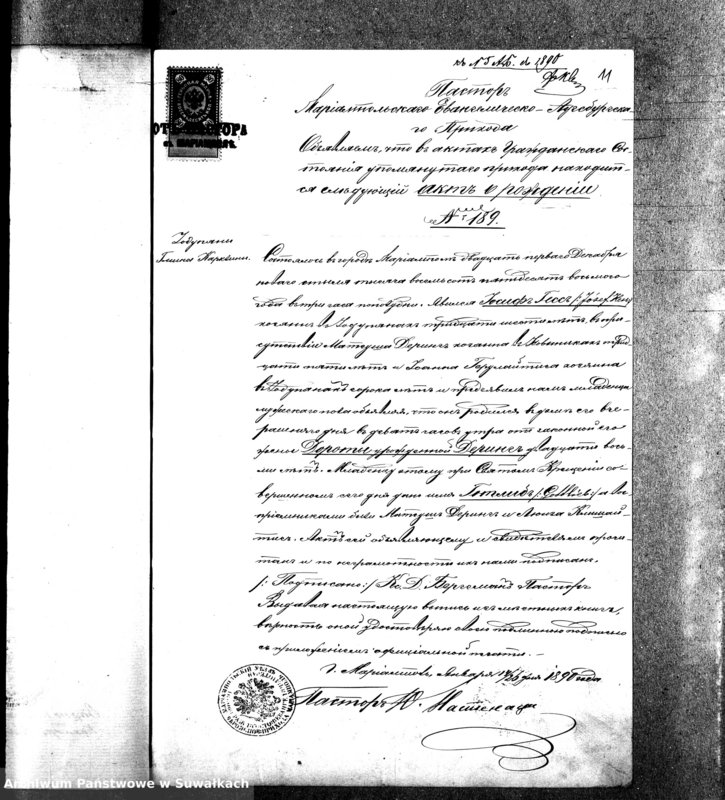 къ № 5 Аб. de 1890
11
Пасторъ
Маріампольскаго Евангелическо-Аугсбургска
го Прихода
Объявляетъ, что въ актахъ Гражданскаго Со-
стоянія упомянутаго прихода находит-
ся слѣдующій актъ о рожденіи
№ 189.
ОТЪ ПАСТОРА
въ МАРІАМПОЛѢ.
Состоялось въ городѣ Маріамполѣ двадцать перваго Декабря
новаго стиля тысяча восемьсотъ пятьдесятъ восьмого
года въ три часа пополудни. Явился Іосифъ Гессъ /: Józef Hess
хозяинъ въ Зодупянахъ тридцати шести лѣтъ, въ при-
сутствіи Матеуша Дерингъ хозяина въ трид
цати пяти лѣтъ и Іоанна хозяина
въ Зодупянахъ сорока лѣтъ и предъявилъ намъ младенца
мужескаго пола объявляя, что онъ родился въ домѣ его вче-
рашняго дня въ девять часовъ утра отъ законной его
жены Дороты урожденной Дерингъ двадцати вось-
ми лѣтъ. Младенцу этому при Святомъ Крещеніи со-
вершенномъ сего дня дано имя Готлибъ а во-
спріемниками были Матеушъ Дерингъ и
Актъ сей объявляющему и свидѣтелямъ прочи-
танъ и по неграмотности ихъ нами подписанъ.
/: Подписано :/ К. Д. Бергеманъ Пасторъ
Выдавая настоящую выпись изъ метныхъ книгъ,
вѣрность оной удостовѣряю своей подписью
съ приложеніемъ оффиціальной печати.
г. Маріамполь Января дня 1890 года
Пасторъ Ю.
Зодупяни
Гмина
Archiwum Państwowe w Suwałkach